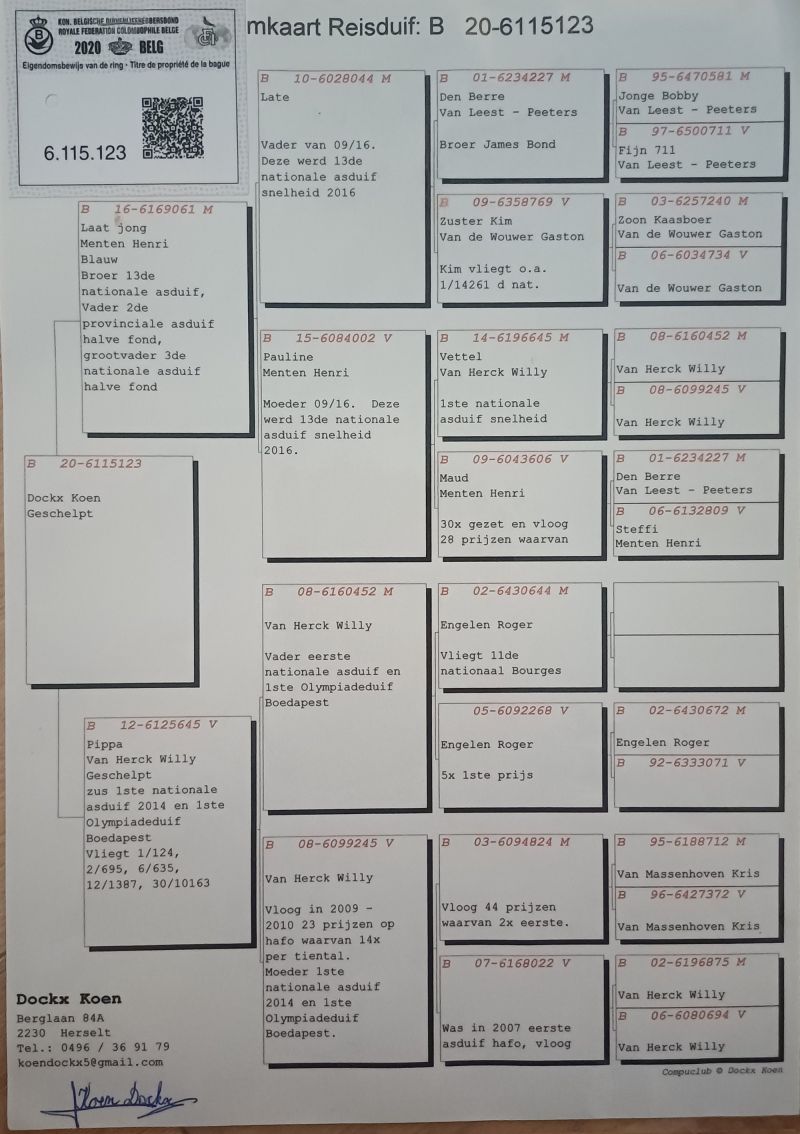 KON. BELGISCHE DUIVENLIEFHEBBERSBOND
ROYALE FEDERATION COLOMBOPHILE BELGE
2020 BELG
Eigendomsbewijs van de ring - Titre de propriété de la bague
6.115.123
mkaart Reisduif: B 20-6115123
B 20-6115123
Dockx Koen
Geschelpt
B 16-6169061 M
Laat jong
Menten Henri
Blauw
Broer 13de
nationale asduif,
Vader 2de
provinciale asduif
halve fond,
grootvader 3de
nationale asduif
halve fond
B 12-6125645 V
Pippa
Van Herck Willy
Geschelpt
zus 1ste nationale
asduif 2014 en 1ste
Olympiadeduif
Boedapest
Vliegt 1/124,
2/695, 6/635,
12/1387, 30/10163
B 10-6028044 M
Late
Vader van 09/16.
Deze werd 13de
nationale asduif
snelheid 2016
B 15-6084002 V
Pauline
Menten Henri
Moeder 09/16. Deze
werd 13de nationale
asduif snelheid
2016.
B 08-6160452 M
Van Herck Willy
Vader eerste
nationale asduif en
1ste Olympiadeduif
Boedapest
B 08-6099245 V
Van Herck Willy
Vloog in 2009 -
2010 23 prijzen op
hafo waarvan 14x
per tiental.
Moeder 1ste
nationale asduif
2014 en 1ste
Olympiadeduif
Boedapest.
B 01-6234227 M
Den Berre
Van Leest - Peeters
Broer James Bond
B 09-6358769 V
Zuster Kim
Van de Wouwer Gaston
Kim vliegt o.a.
1/14261 d nat.
B 14-6196645 M
Vettel
Van Herck Willy
1ste nationale
asduif snelheid
B 09-6043606 V
Maud
Menten Henri
30x gezet en vloog
28 prijzen waarvan
B 02-6430644 M
Engelen Roger
Vliegt 11de
nationaal Bourges
05-6092268 V
Engelen Roger
5x 1ste prijs
B 03-6094824 M
Vloog 44 prijzen
waarvan 2x eerste.
B 07-6168022 V
Was in 2007 eerste
asduif hafo, vloog
B 95-6470581 M
Jonge Bobby
Van Leest - Peeters
B 97-6500711 V
Fijn 711
Van Leest - Peeters
B 03-6257240 M
Zoon Kaasboer
Van de Wouwer Gaston
B 06-6034734 V
Van de Wouwer Gaston
B 08-6160452 M
Van Herck Willy
B 08-6099245 V
Van Herck Willy
B 01-6234227 M
Den Berre
Van Leest - Peeters
B 06-6132809 V
Steffi
Menten Henri
B 02-6430672 M
Engelen Roger
B 92-6333071 V
B 95-6188712 M
Van Massenhoven Kris
B 96-6427372 V
Van Massenhoven Kris
B 02-6196875 M
Van Herck Willy
B 06-6080694 V
Van Herck Willy
Compuclub © Dockx Koen
Dockx Koen
Berglaan 84A
2230 Herselt
Tel.: 0496 / 36 91 79
koendockx5@gmail.com
Koen Dockx